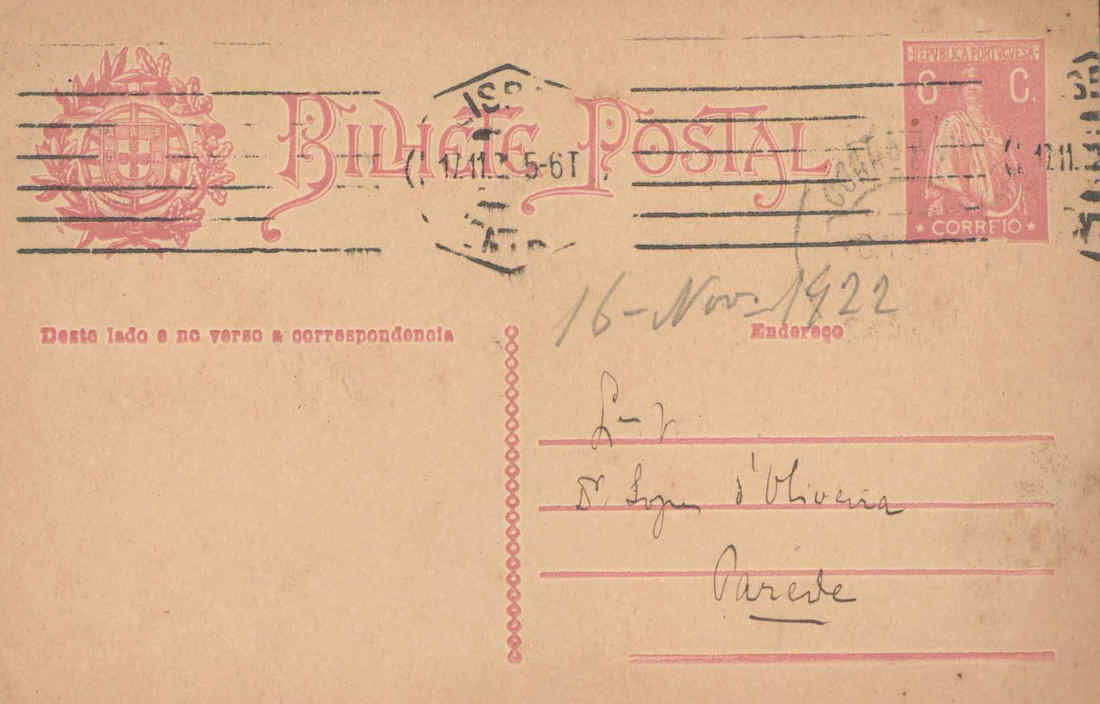 BILHETE POSTAL
REPVBLICA PORTVGVESA
6 C.
CORREIO
17.11.2 5-6T
17.11.
16-Nov-1922
Deste lado e no verso a correspondencia
Endereço
Dr Lopes d'Oliveira
Parede